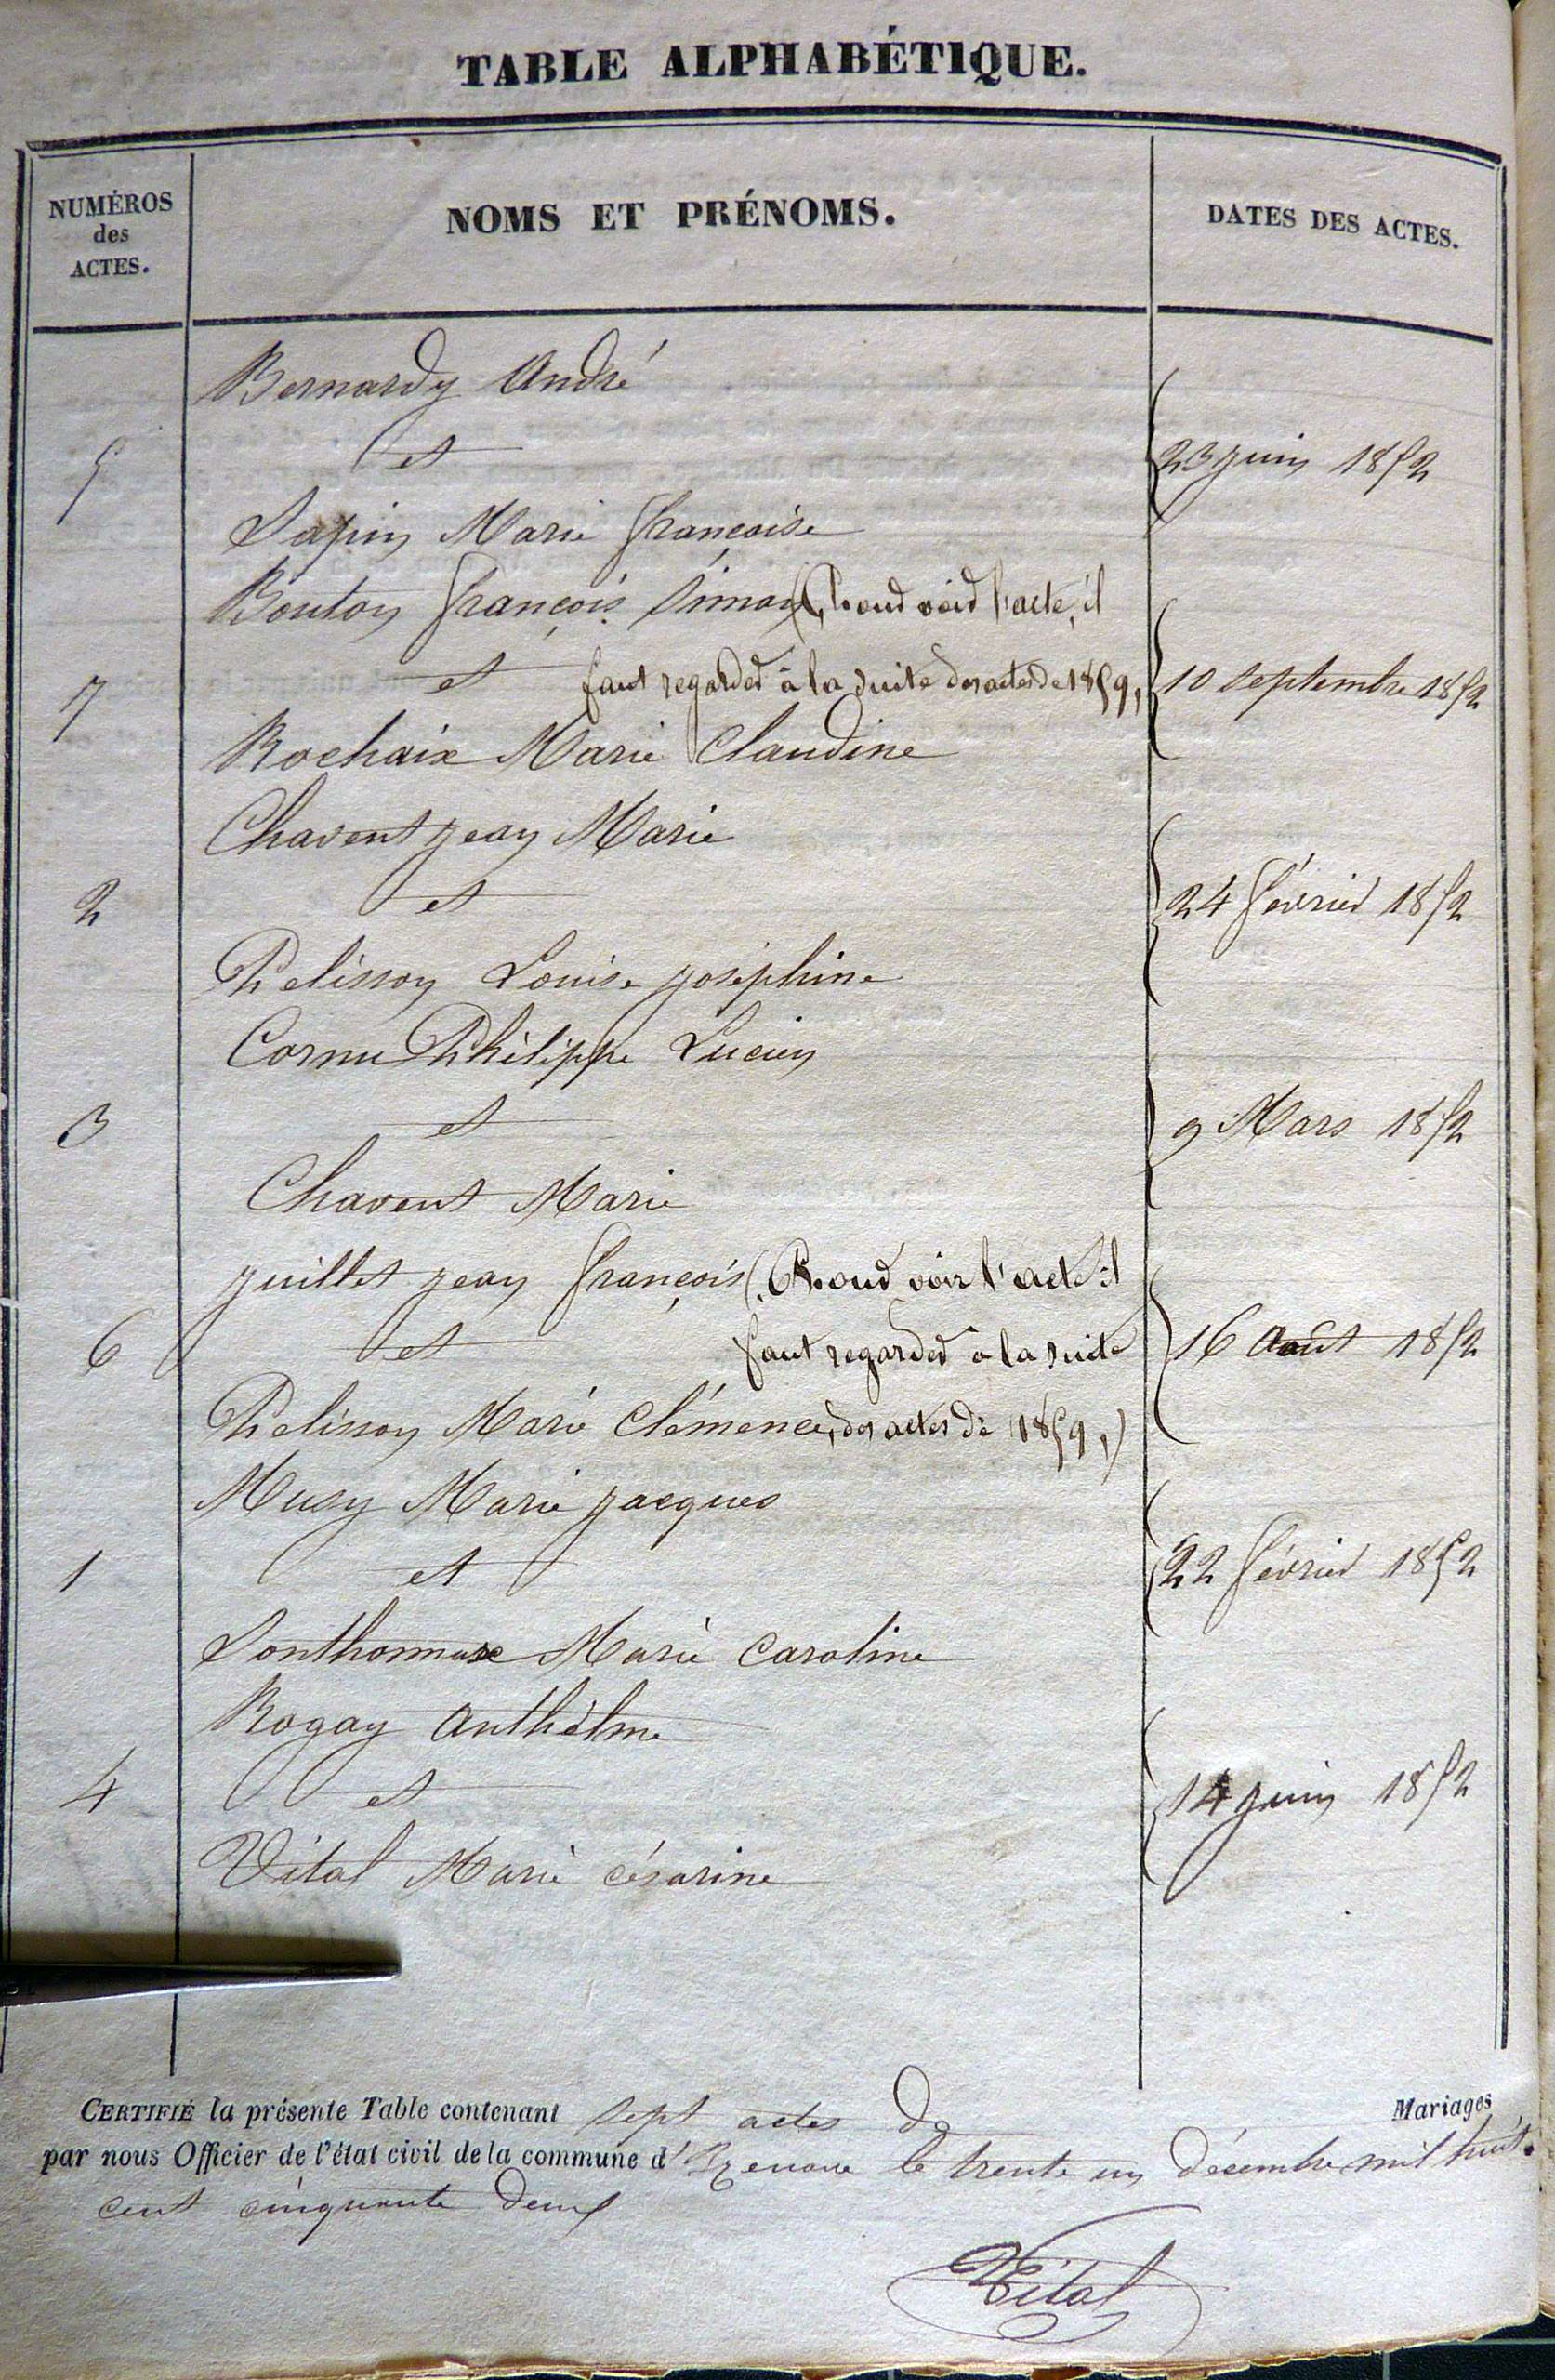 TABLE ALPHABÉTIQUE.
NUMÉROS
des
ACTES.
NOMS ET PRÉNOMS.
DATES DES ACTES.
Bernardy André
5 et 23 juin 1852
Sapin Marie françoise
Bouton françois Simon (Pour voir l'acte, il
et faut regarder à la suite des actes de 1859,
7 10 septembre 1852
Rochaix Marie Claudine
Chavent jean Marie
2 et 24 février 1852
Pelisson Louise joséphine
Cornu Philippe Lucien
3 et 9 Mars 1852
Chavent Marie
juillet jean françois (Pour voir l'acte il
6 et faut regarder à la suite 16 Août 1852
Pelisson Marie Clémence, des actes de 1859,)
Musy Marie jacques
1 et 22 février 1852
Sonthonnax Marie Caroline
Rogay Anthèlme
4 et 14 juin 1852
Vital Marie césarine
CERTIFIÉ la présente Table contenant sept actes de Mariages
par nous Officier de l'état civil de la commune d' le trente un désembre mil huit
cent cinquante deux
Vital